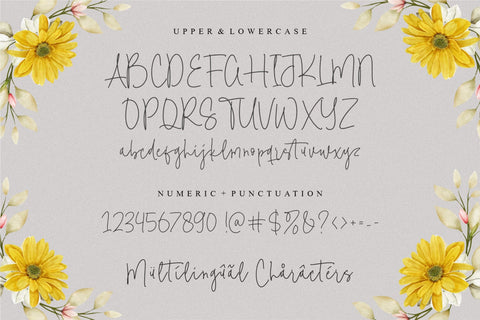 UPPER & LOWERCASE
ABCDEFGHIJKLMN
OPQRSTUVWXYZ
abcdefghijklmnopqrstuvwxyz
NUMERIC + PUNCTUATION
1234567890 !@#$%&?<>+=_-
Mültilingûãl Chåràctérs